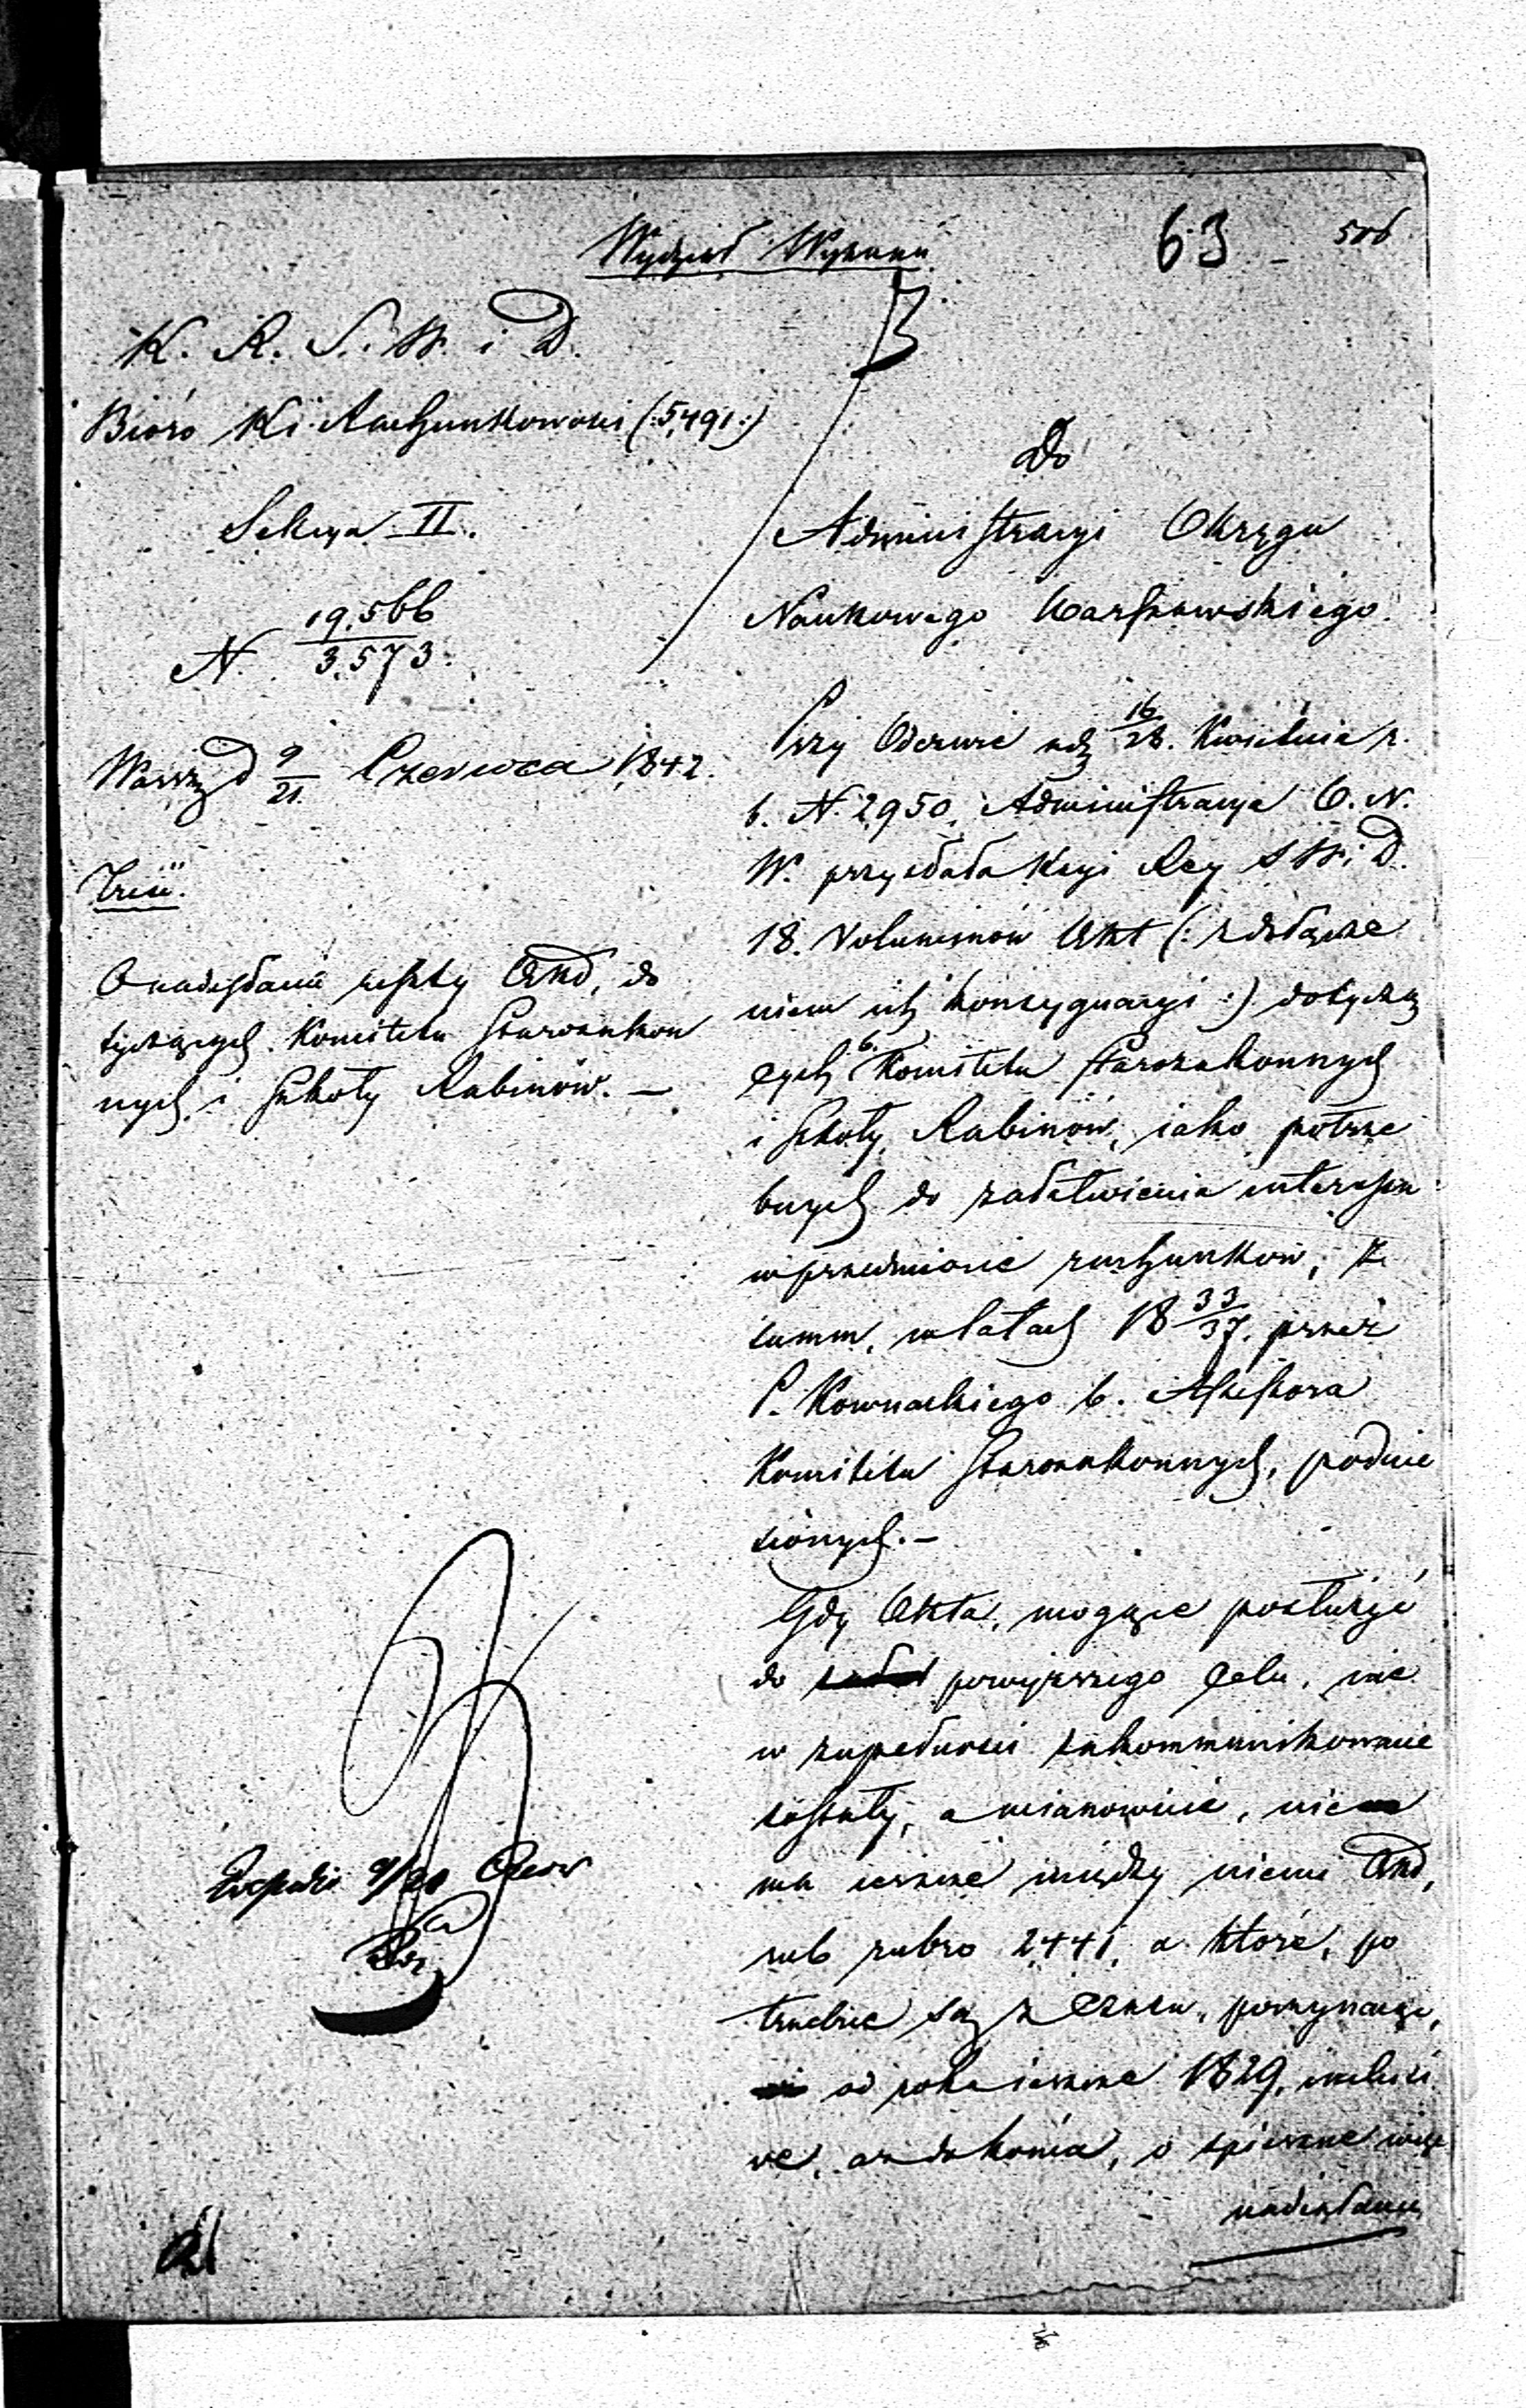 Wydział Wyznań
63
506
K. R. S. W. i D.
Bióro Kł Rachunkowości (:5,491:)
Sekcya II.
N. 19.566/3.573.
Warsz. d 9/21. Czerwca 1842.
Treść.
O nadesłanie reszty Akt, do
tyczących Komitetu Starozakon
nych i Szkoły Rabinów. —
Expedir 9/21 Czerw
Do
Administracyi Okręgu
Naukowego Warszawskiego.
Przy Odezwie z d 16/28. Kwietnia r.
b. N. 2950, Administracya O. N.
W. przesłała Kcyi Rzą S W. i D.
18. Voluminów Akt (: z dołącze
niem ich konsygnacyi :) dotyczą
cych b. Komitetu Starozakonnych
i Szkoły Rabinów, iako potrze
bnych do załatwienia interessu
w przedmiocie rachunków, z
summ, w latach 18 33/37. przez
P. Kownackiego b. Assessora
Komitetu Starozakonnych, podnie
sionych. —
Gdy Akta, mogące posłużyć
do powyższego Celu, nie
w zupełności zakommunikowane
zostały, a mianowicie, nie
ma ieszcze między niemi Akt,
sub rubro 2441, a które, po
trzebne są z Czasu, poczynając,
od roku ieszcze 1829, inclusi
ve, aż do końca, o spieszne więc
nadesłanie